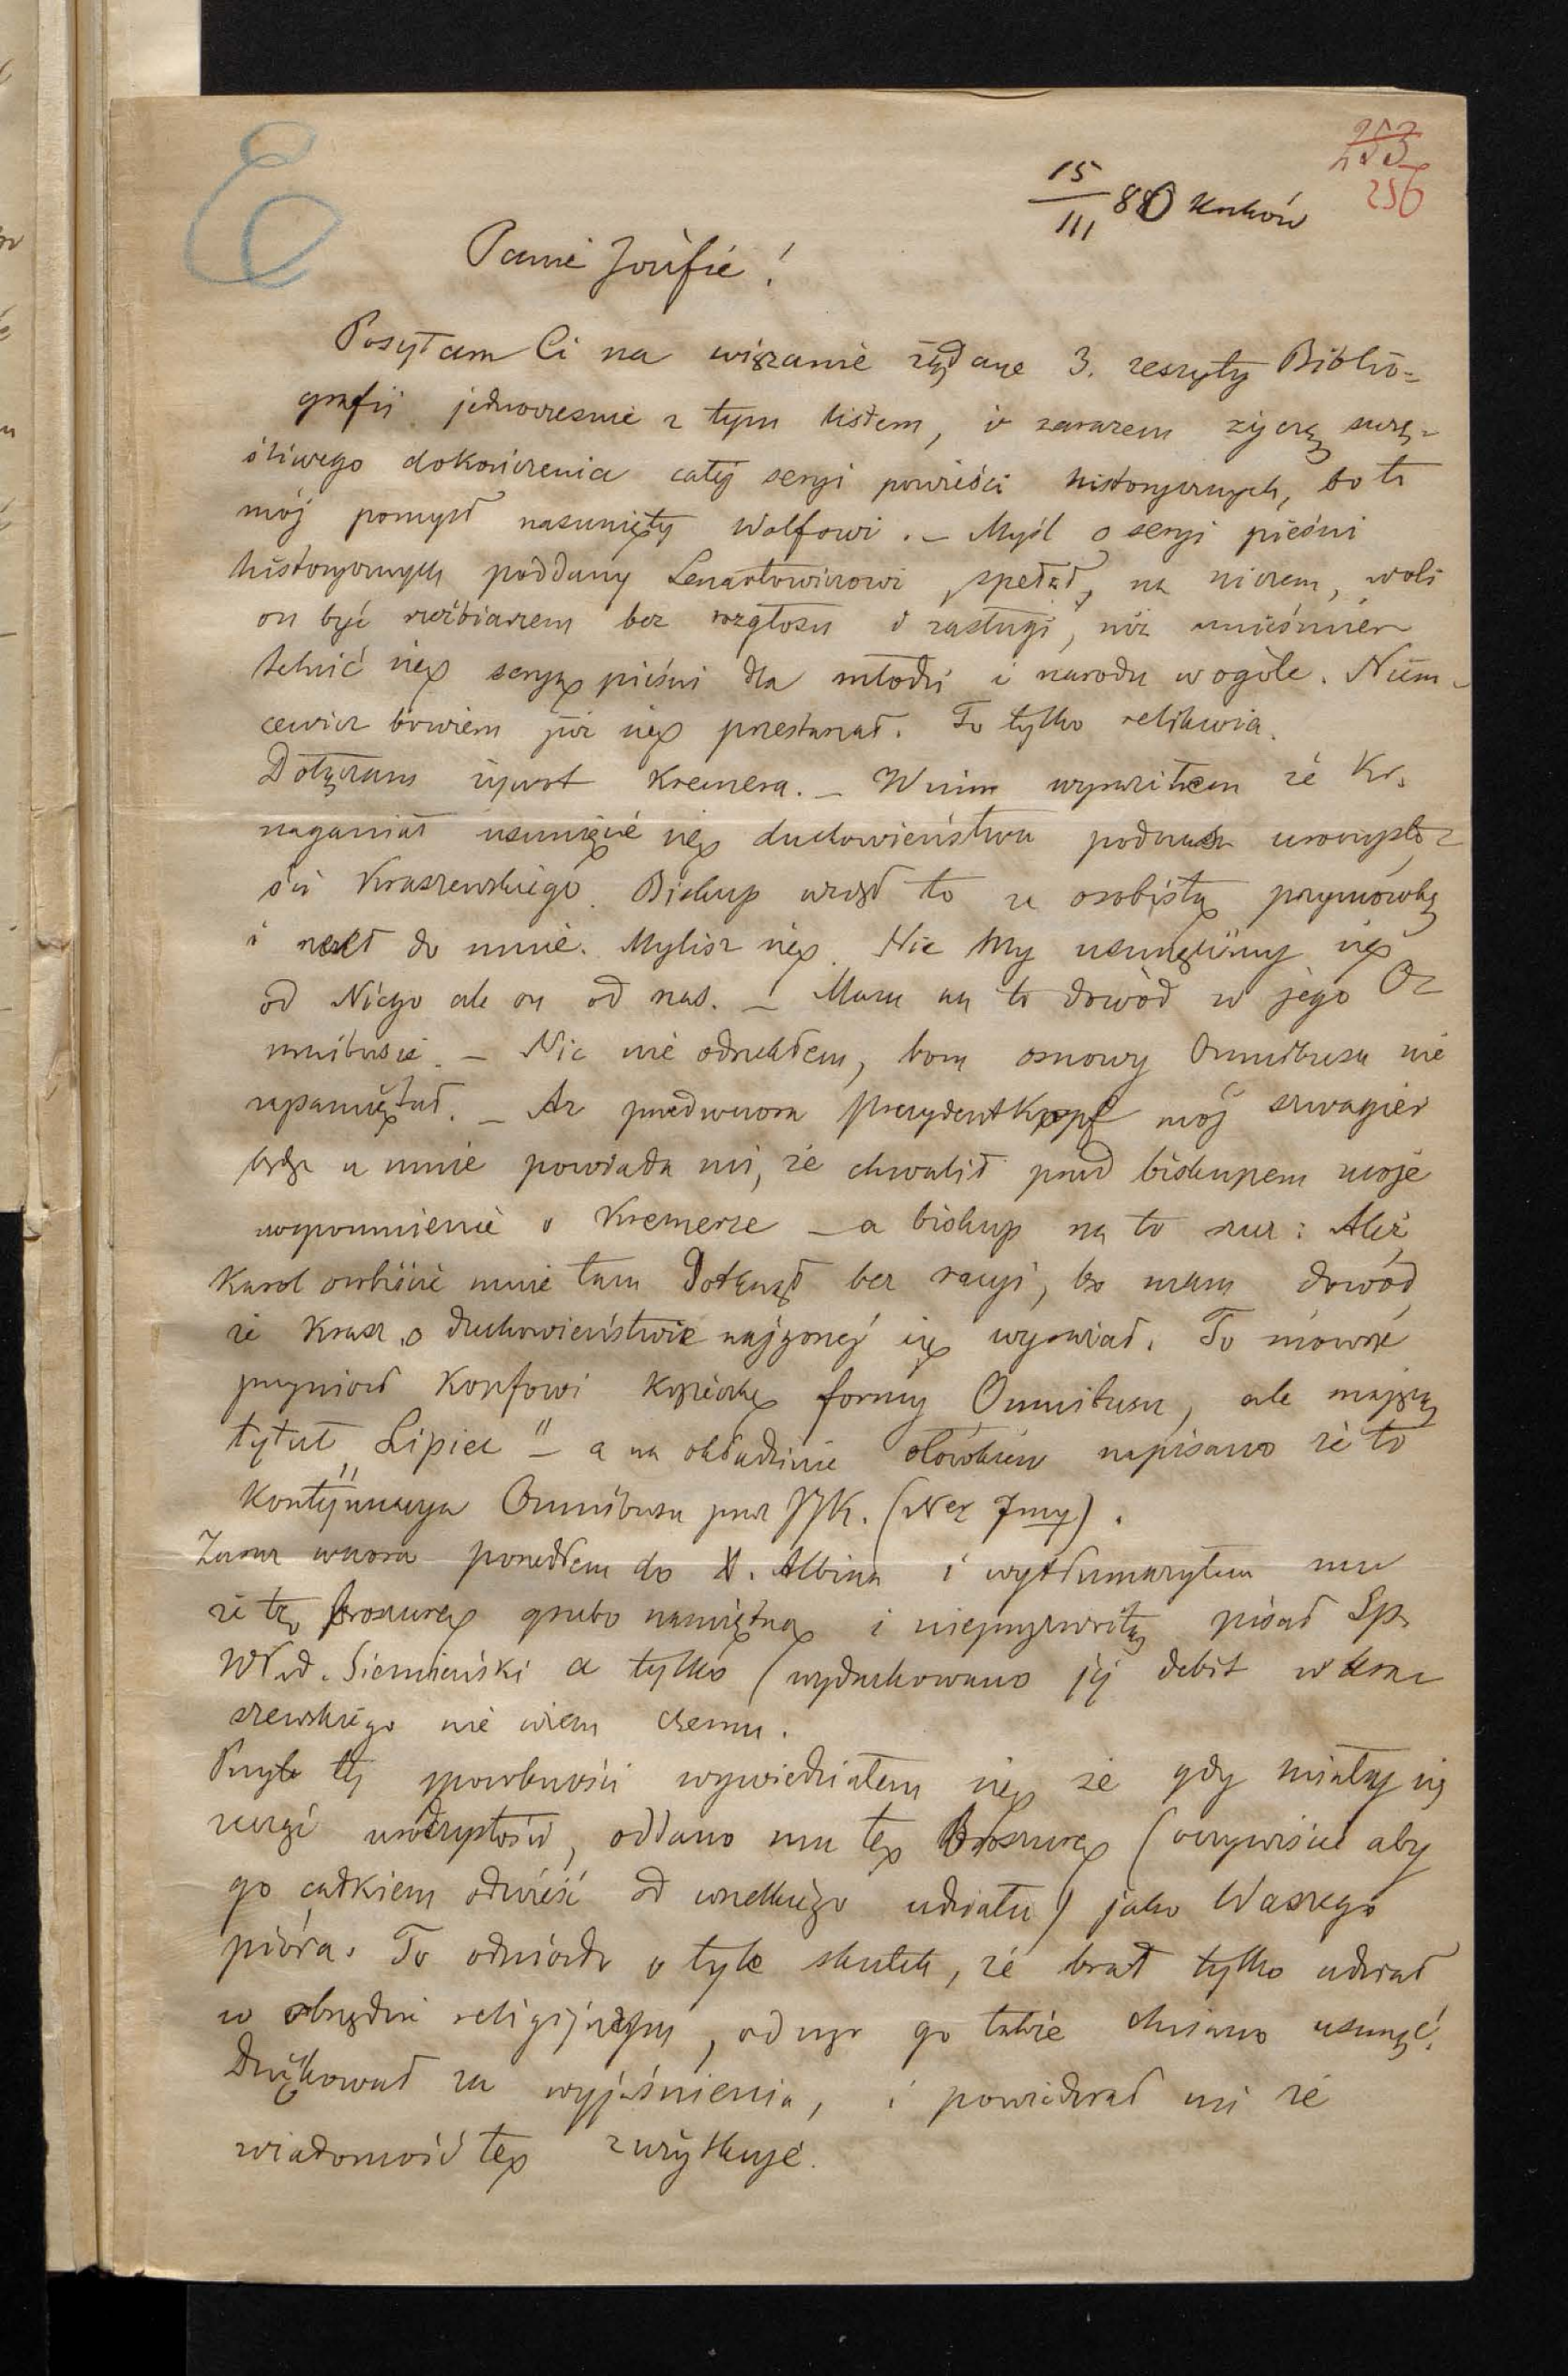 253
256
15/III 880 Kraków
Panie Józefie!
Posyłam Ci na wiązanie żądane 3. zeszyty Biblio=
grafii jednocześnie z tym listem, i zarazem życzę szczę-
śliwego dokończenia całéj seryi powieści historycznych, bo to
mój pomysł nasunięty Wolfowi. – Myśl o seryi pieśni
historycznych poddany Lenartowiczowi spełzł na niczem, woli
on być rzeźbiarzem bez rozgłosu i zasługi, niż unieśmier
telnić się seryą pieśni dla młodzi i narodu w ogóle. Niem-
cewicz bowiem już się przestarzał. To tylko relikwia.
Dołączam żywot Kremera. – W nim wyraziłem że Kr.
naganiał usunięcie się duchowieństwa podczas uroczysto-
ści Kraszewskiego. Biskup wziął to za osobistą przymówkę
i rzekł do mnie. Mylisz się. Nie my usunęliśmy się
od Niego ale on od nas. – Mam na to dowód w jego O-
mnibusie. – Nic nie odrzekłem, bom osnowy Omnibusa nie
zapamiętał. – Aż przedwczora prezydent Kopf mój szwagier
będąc u mnie powiada mi, że chwalił przed biskupem moje
wspomnienie o Kremerze – a biskup na to rzecz: Ależ
Karol osobiście mnie tam dotknął bez racyi, bo mam dowód
że Krasz. o duchowieństwie najgorzéj się wyrażał. To mówiąc
przyniósł Kopfowi książeczkę formy Omnibusu, ale mającą
tytuł „Lipiec" – a na okładzinie ołówkiem napisano że to
kontynuacya Omnibusa przez JJK. (Nr
Zaraz wczora poszedłem do X. Albina i wytłumaczyłem mu
że tę broszurę grubo namiętną i nieprzyzwoitą pisał Sp.
Wład. Siemieński a tylko (wydrukowano jéj debit w Kra-
szewskiego nie wiem czemu.
Przy téj sposobności wywiedziałem się że gdy miały się
zacząć uroczystości, oddano mu tę Broszurę (oczywiście aby
go całkiem odwieść od wszelkiego udziału) jako Waszego
pióra. To odniosło o tyle skutek, że brał tylko udział
w obrzędzie religijnym, od czego go także chciano usunąć.
Dziękował za wyjaśnienia, i powiedział mi że
wiadomość tę zużytkuje.